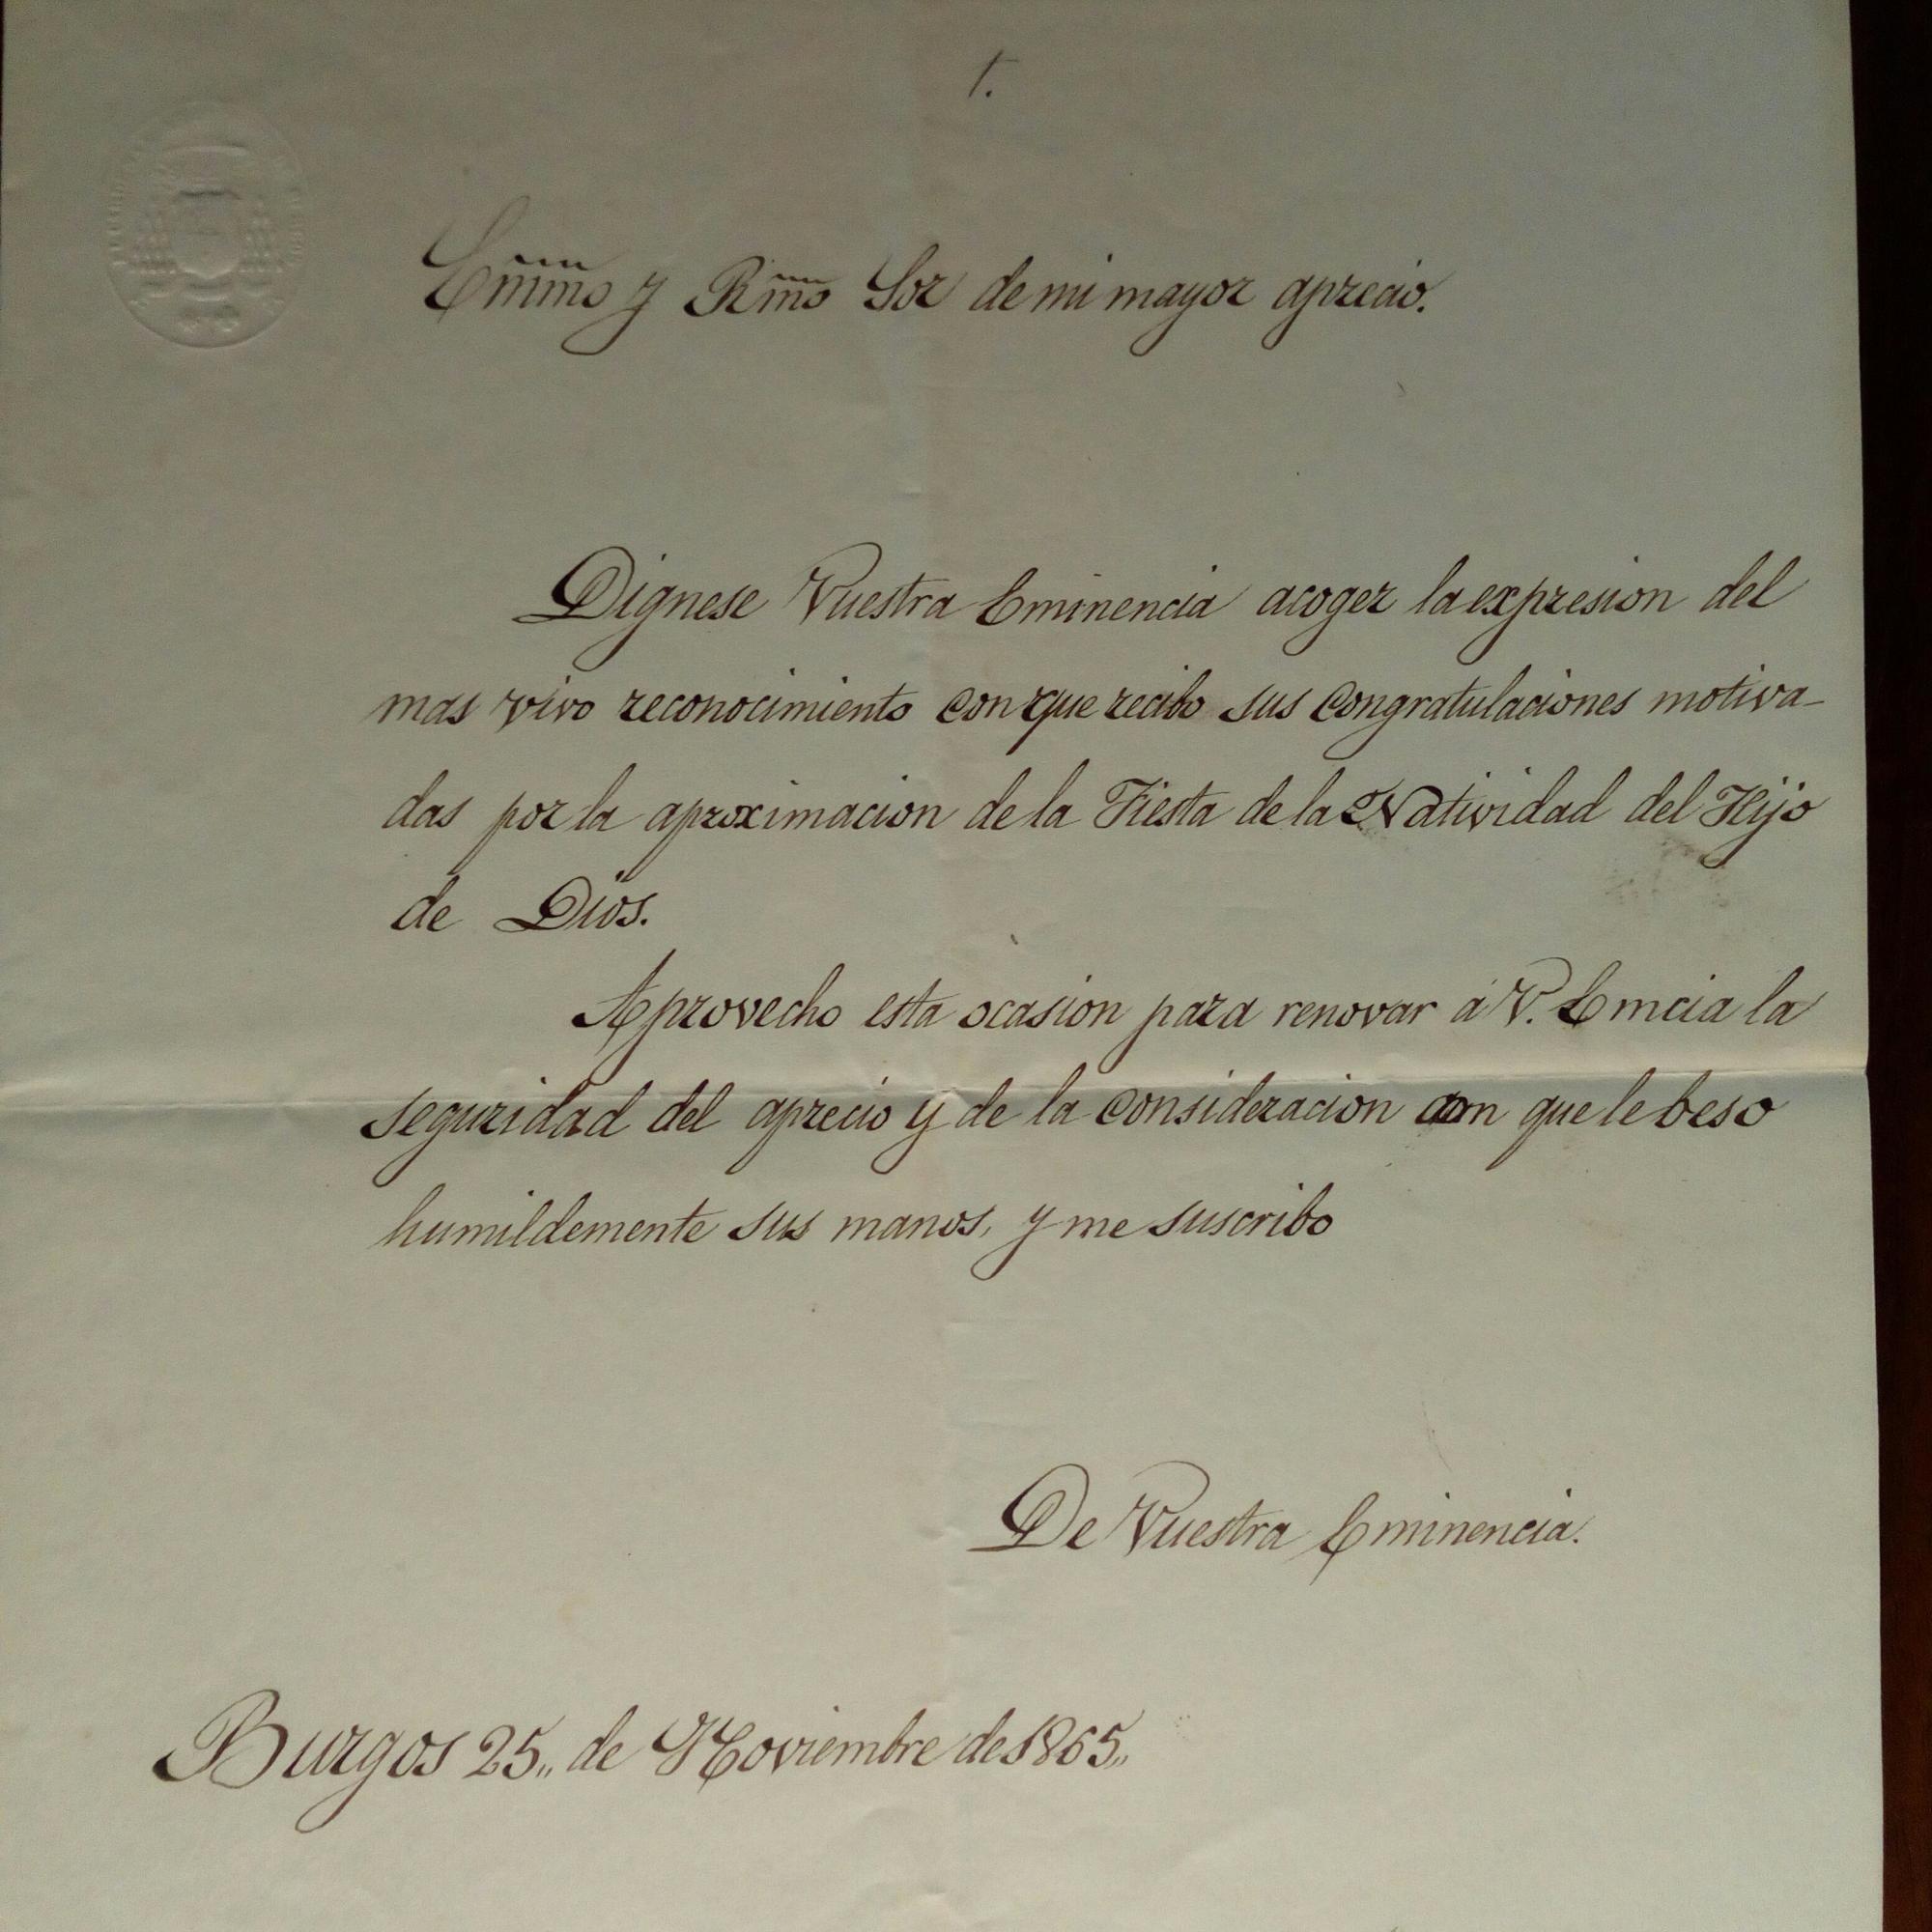 †.
Emmo y Rmo Sor de mi mayor aprecio.
Dignese Vuestra Eminencia acoger la expresion del
mas vivo reconocimiento con que recibo sus Congratulaciones motiva-
das por la aproximacion de la Fiesta de la Natividad del Hijo
de Dios.
Aprovecho esta ocasion para renovar á V. Emcia la
seguridad del aprecio y de la consideracion con que le beso
humildemente sus manos, y me suscribo
De Vuestra Eminencia.
Burgos 25,, de Noviembre de 1865,,